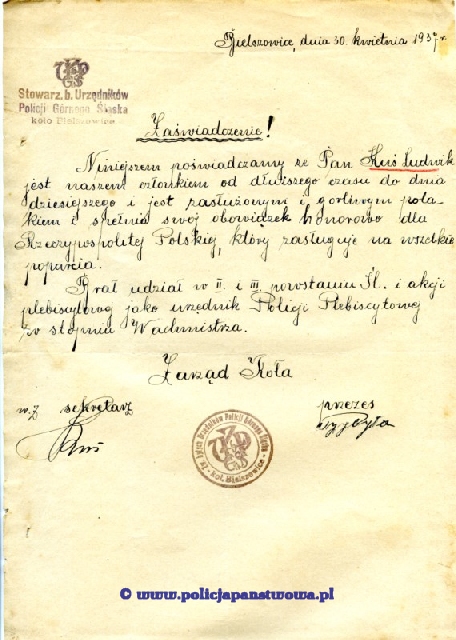 Bielszowice, dnia 30. kwietnia 1937 r.
Stowarz. b. Urzędników
Policji Górnego Śląska
koło Bielszowice
Zaświadczenie!
Niniejszem poświadczamy że Pan Kuś Ludwik
jest naszem członkiem od dłuższego czasu do dnia
dzisiejszego i jest zasłużonym i gorliwym pola-
kiem i spełnia swój obowiązek honorowo dla
Rzeczypospolitej Polskiej, który zasługuje na wszelkie
poparcia.
Brał udział w II. i III powstaniu Śl. i akcji
plebiscytowej jako urzędnik Policji Plebiscytowej
w stopniu Wachmistrza.
Zarząd Koła
w. z sekretarz
prezes
Kol. Bielszowice
© www.policjapanstwowa.pl